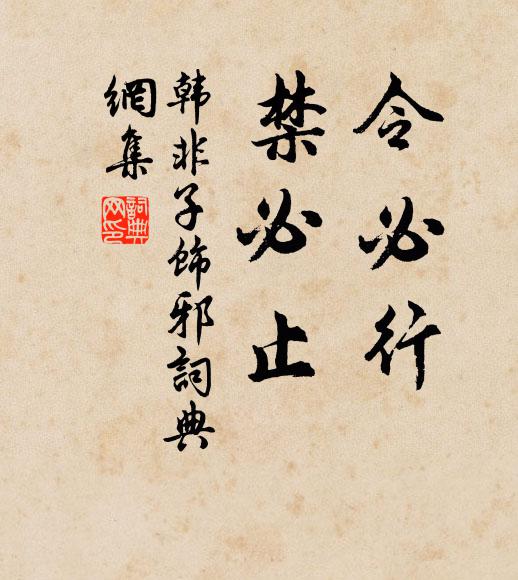 令必行
禁必止
韓非子飾邪詞典
網集
詞典
网印